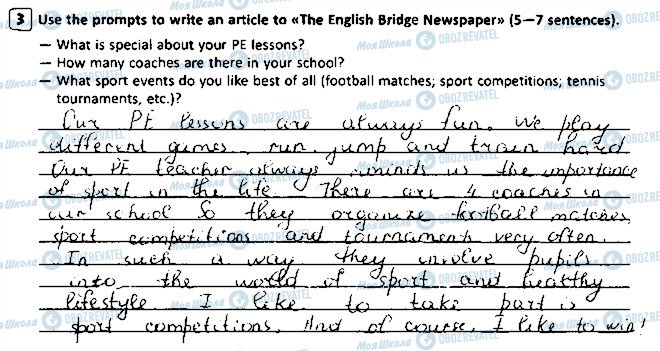 3 Use the prompts to write an article to «The English Bridge Newspaper» (5—7 sentences).
— What is special about your PE lessons?
— How many coaches are there in your school?
— What sport events do you like best of all (football matches; sport competitions; tennis
tournaments, etc.)?
Our PE lessons are always fun. We play
different games, run, jump and train hard
Our PE teacher always reminds us the importance
of sport in the life. There are 4 coaches in
our school So they organize football matches,
sport competitions and tournaments very often.
In such a way they involve pupils
into the world of sport and healthy
lifestyle. I like to take part is
sport competitions. And of course, I like to win!